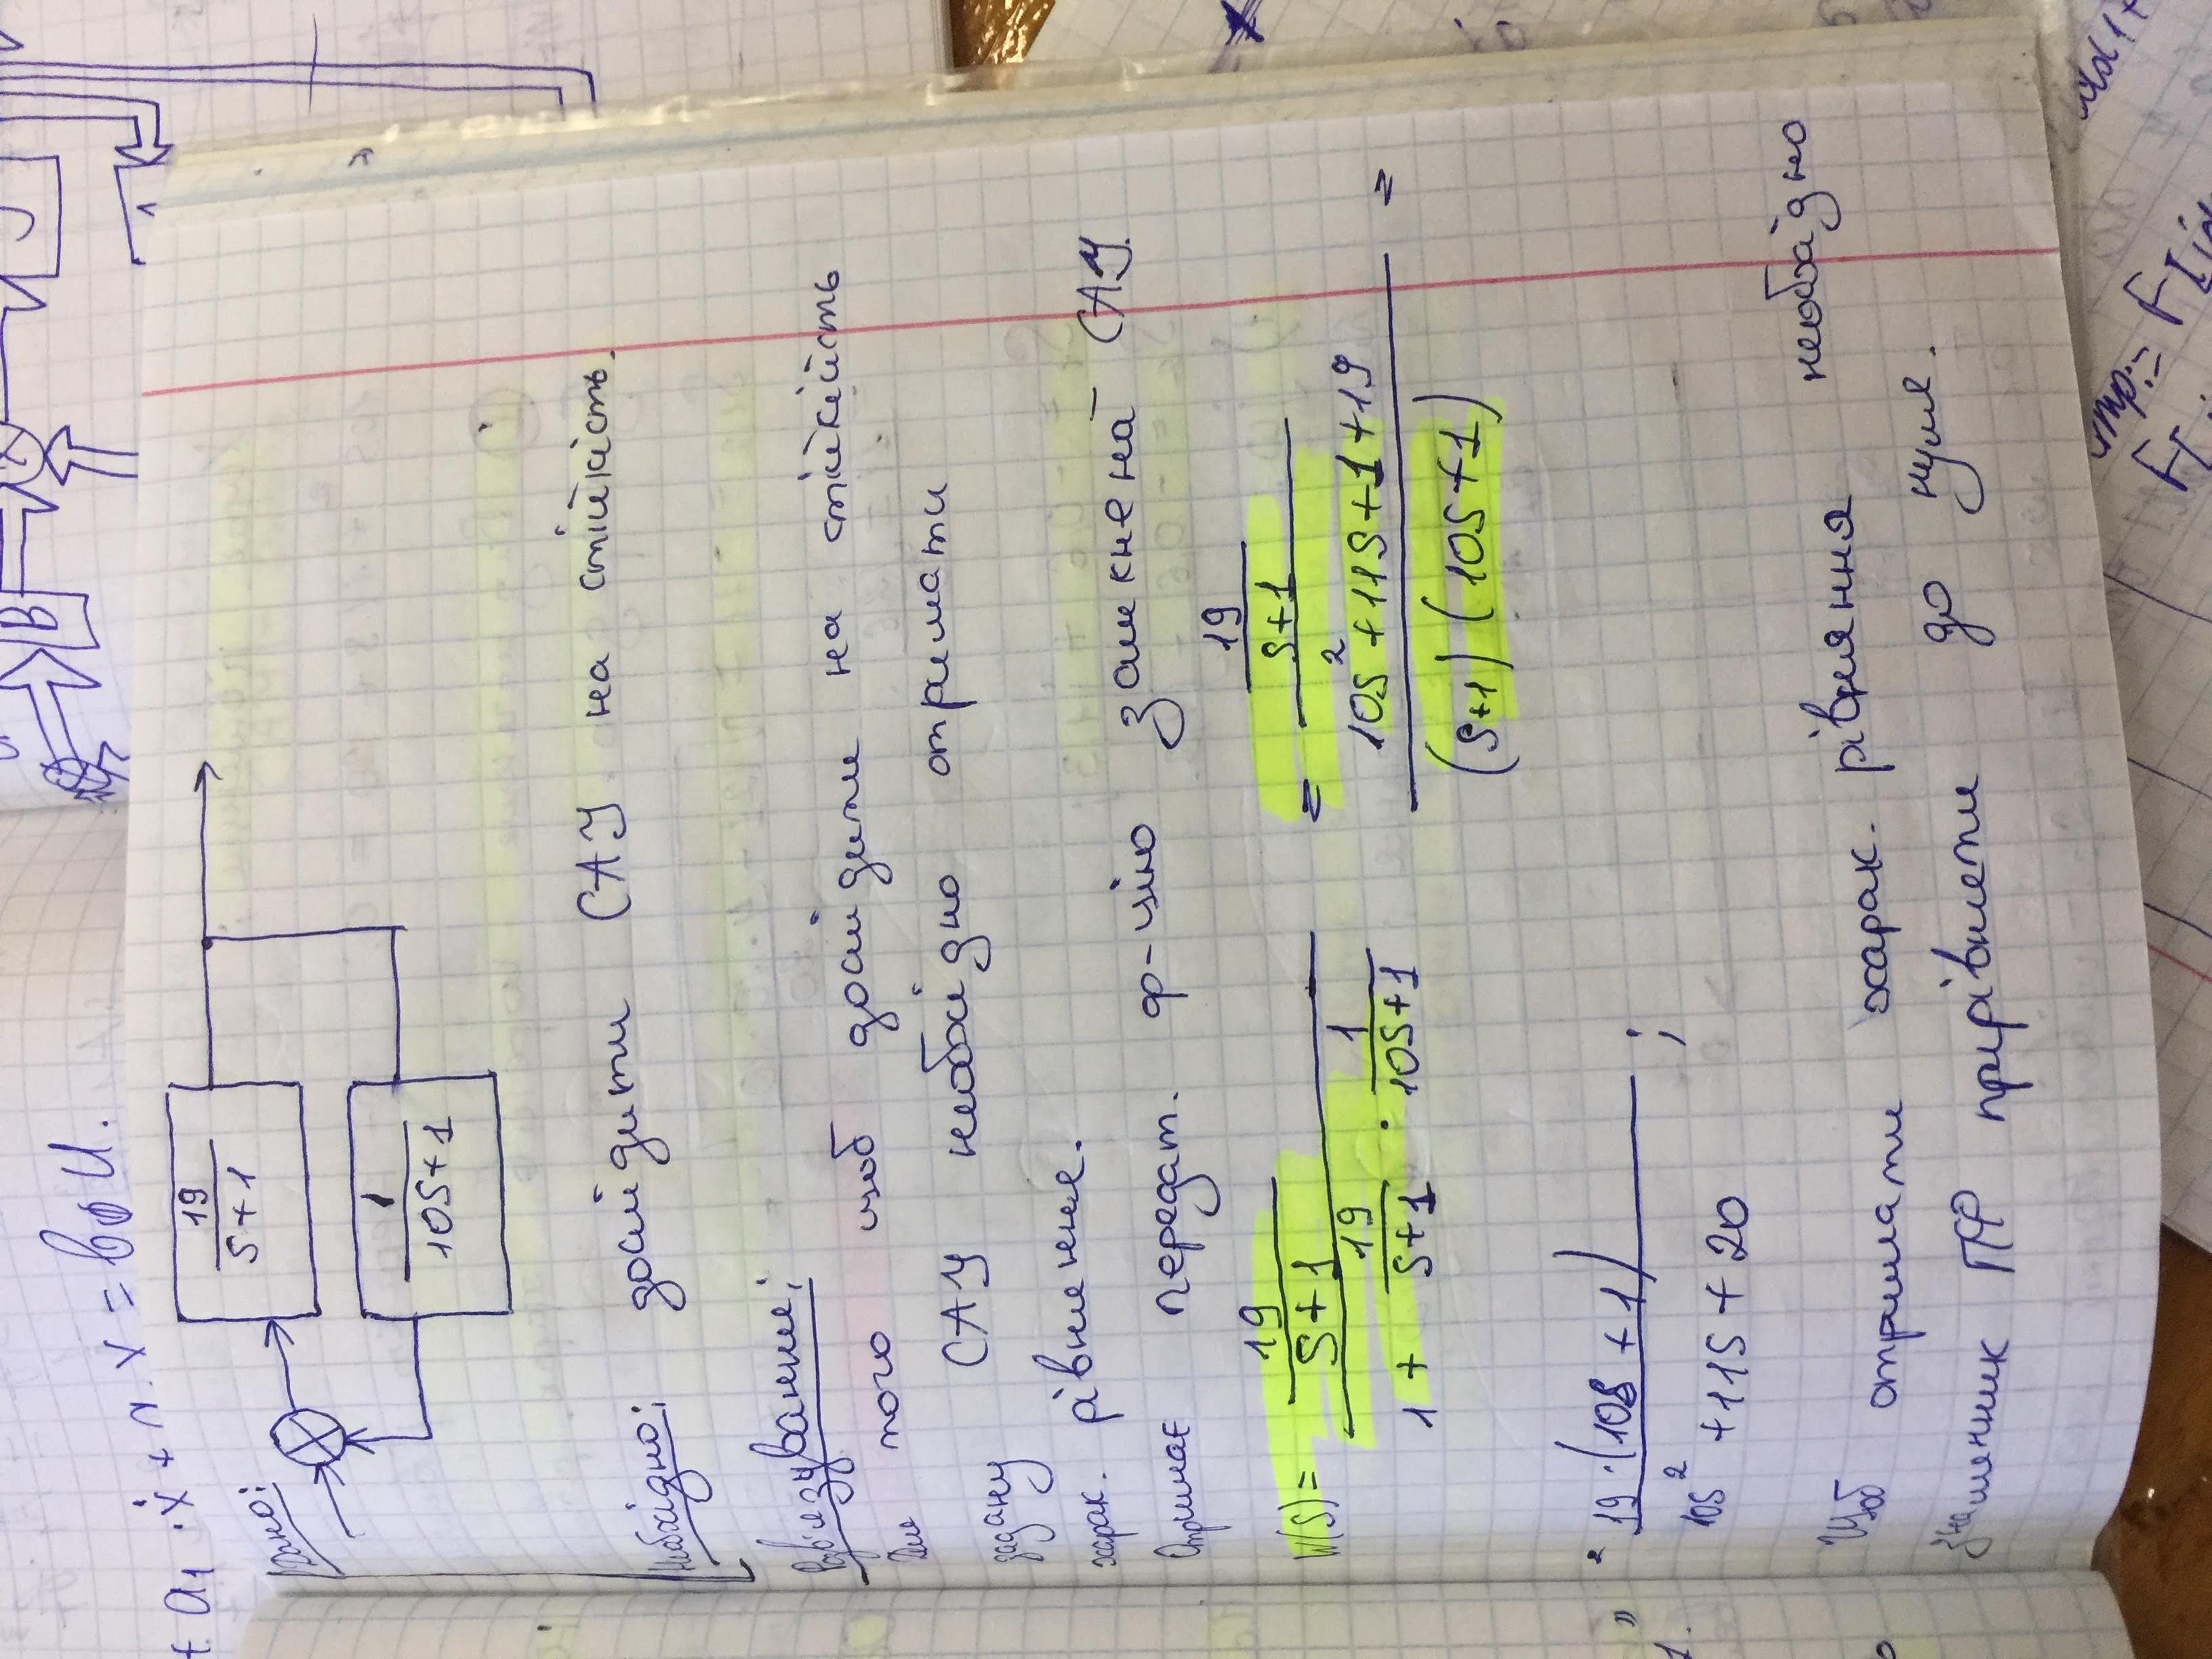 + a₁ · ẋ + n · x = b₀ U.
B
Дано:
19
S+1
1
10S+1
Необхідно: дослідити САУ на стійкість.
Розв'язування:
Для того щоб дослідити на стійкійсть
задану САУ необхідно отримати
харак. рівняння.
Отримає передат. ф-цію замкнена САУ.
W(S) = (19/(S+1)) / (1 + 19/(S+1) · 1/(10S+1)) = (19/(S+1)) / ((10S² + 11S + 1 + 19)/((S+1)(10S+1))) =
= 19·(10S + 1) / (10S² + 11S + 20) ;
Щоб отримати харак. рівняння необхідно
знаменник ПФ прирівняти до нуля.